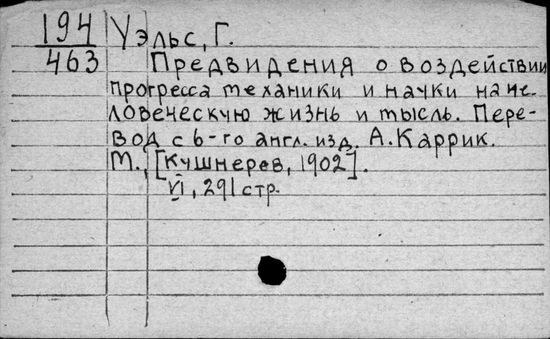 194 Уэльс, Г.
463 Предвидения о воздействии
прогресса механики и науки на че-
ловеческую жизнь и мысль. Пере-
вод с 6-го англ. изд. А. Каррик.
М., [Кушнерев, 1902].
VI, 291 стр.